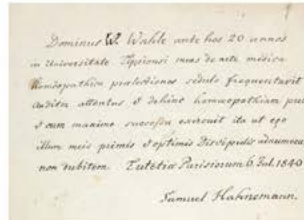 Dominus W. Wahle ante hos 20 annos
in Universitate Lipsiensi meas de arte medica
homoeopathica praelectiones sedulo frequentavit
auditor attentus et dehinc homoeopathiam
cum maximo successu exercuit ita ut ego
illum meis primis et optimis Discipulis adnumerare
non dubitem. Lutetia Parisiorum 6 Jul. 1840
Samuel Hahnemann.